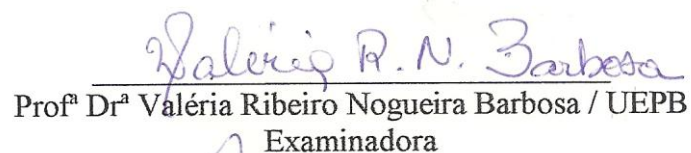 Valéria R. N. Barbosa
Profª Drª Valéria Ribeiro Nogueira Barbosa / UEPB
Examinadora